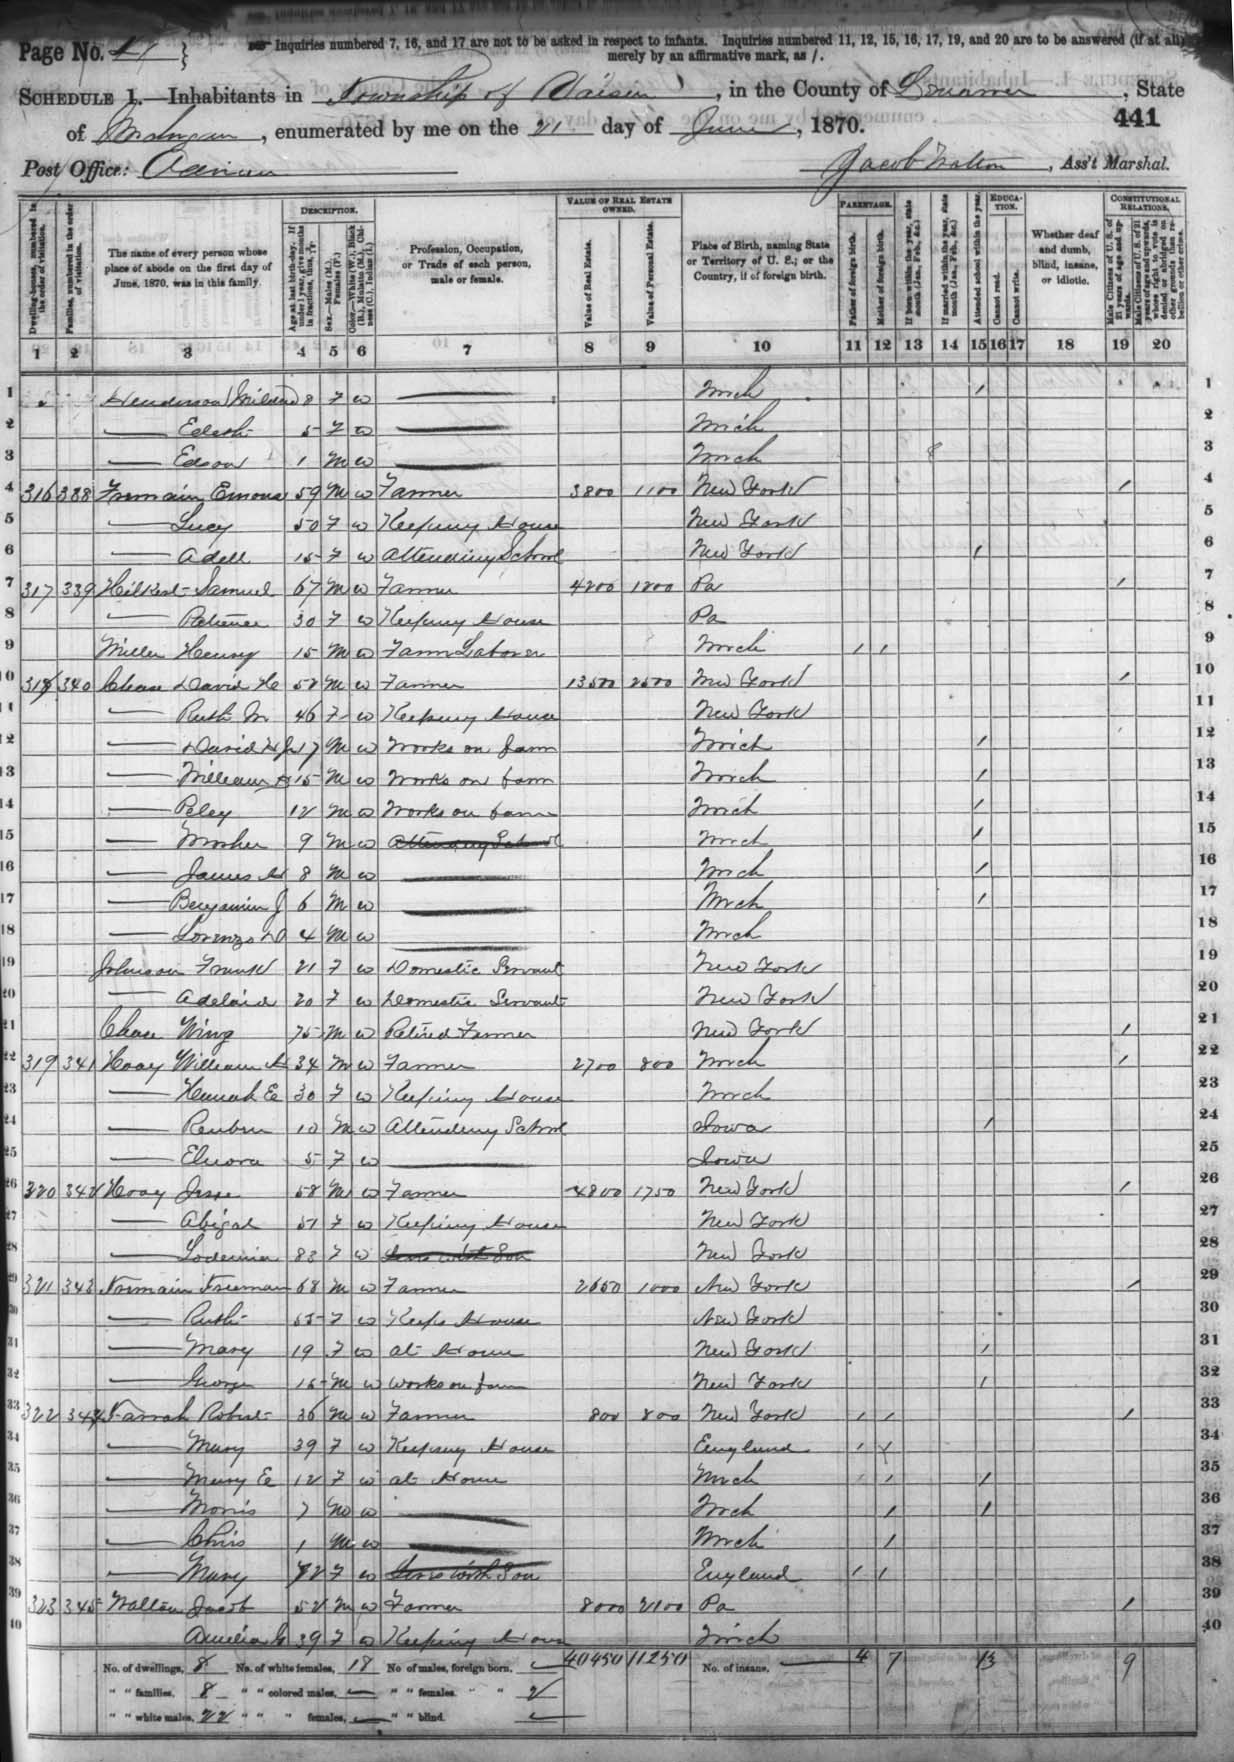 Page No. 41 } Inquiries numbered 7, 16, and 17 are not to be asked in respect to infants. Inquiries numbered 11, 12, 15, 16, 17, 19, and 20 are to be answered (if at all)
merely by an affirmative mark, as /.
SCHEDULE 1.—Inhabitants in Township of Raisin, in the County of Lenawee, State
of Michigan, enumerated by me on the 21 day of June, 1870. 441
Post Office: Adrian Jacob Walton, Ass't Marshal.
DESCRIPTION. VALUE OF REAL ESTATE OWNED. PARENTAGE. EDUCATION. CONSTITUTIONAL RELATIONS.
Dwelling-houses, numbered in the order of visitation.
Families, numbered in the order of visitation.
The name of every person whose place of abode on the first day of June, 1870, was in this family.
Age at last birth-day. If under 1 year, give months in fractions, thus, 3/12
Sex.—Males (M.), Females (F.)
Color.—White (W.), Black (B.), Mulatto (M.), Chinese (C.), Indian (I.)
Profession, Occupation, or Trade of each person, male or female.
Value of Real Estate.
Value of Personal Estate.
Place of Birth, naming State or Territory of U. S.; or the Country, if of foreign birth.
Father of foreign birth.
Mother of foreign birth.
If born within the year, state month (Jan., Feb., &c.)
If married within the year, state month (Jan., Feb., &c.)
Attended school within the year.
Cannot read.
Cannot write.
Whether deaf and dumb, blind, insane, or idiotic.
Male Citizens of U. S. of 21 years of age and upwards.
Male Citizens of U. S. of 21 years of age and upwards, whose right to vote is denied or abridged on other grounds than rebellion or other crime.
1 2 3 4 5 6 7 8 9 10 11 12 13 14 15 16 17 18 19 20
1 Henderson Mildred 8 F W Mich / 1
2 — Edith 5 F W Mich 2
3 — Edson 1 M W Mich 3
4 316 338 Tremain 59 M W Farmer 3800 1100 New York / 4
5 — Lucy 50 F W Keeping House New York 5
6 — Adell 15 F W Attending School New York / 6
7 317 339 Samuel 67 M W Farmer 4200 1800 Pa / 7
8 — Patience 30 F W Keeping House Pa 8
9 Miller Henry 15 M W Farm Laborer Mich / / 9
10 318 340 Chase David H 58 M W Farmer 13500 2500 New York / 10
11 — Ruth M 46 F W Keeping House New York 11
12 — David H Jr 17 M W Works on farm Mich / 12
13 — William 15 M W Works on farm Mich / 13
14 — Peley 12 M W Works on farm Mich / 14
15 — Mosher 9 M W Attending School Mich / 15
16 — James H 8 M W Mich / 16
17 — Benjamin J 6 M W Mich / 17
18 — Lorenzo D 4 M W Mich 18
19 Johnson Frank 21 F W Domestic Servant New York 19
20 — Adelaid 20 F W Domestic Servant New York 20
21 Chase Wing 75 M W Retired Farmer New York / 21
22 319 341 Hoag William H 34 M W Farmer 2700 800 Mich / 22
23 — Hannah E 30 F W Keeping House Mich 23
24 — Reuben 10 M W Attending School Iowa / 24
25 — Elnora 5 F W Iowa 25
26 320 342 Hoag Jesse 58 M W Farmer 4800 1750 New York / 26
27 — Abigal 57 F W Keeping House New York 27
28 — 83 F W Lives with Son New York 28
29 321 343 Tremain Freeman 68 M W Farmer 2650 1000 New York / 29
30 — Ruth 65 F W Keeps House New York 30
31 — Mary 19 F W at Home New York / 31
32 — George 15 M W Works on farm New York / 32
33 322 344 Robert 36 M W Farmer 800 800 New York / / / 33
34 — Mary 39 F W Keeping House England / / 34
35 — Mary E 12 F W at Home Mich / / / 35
36 — Morris 7 M W Mich / / 36
37 — Chris 1 M W Mich / 37
38 — Mary 72 F W Lives with Son England / / 38
39 323 345 Walton Jacob 52 M W Farmer 8000 2100 Pa / 39
40 Amelia G 39 F W Keeping House Mich 40
No. of dwellings, 8 No. of white females, 18 No of males, foreign born, — 40450 11250 No. of insane, — 4 7 13 9
" " families, 8 " " colored males, — " " females, " " 2
" " white males, 22 " " " females, — " " blind. —